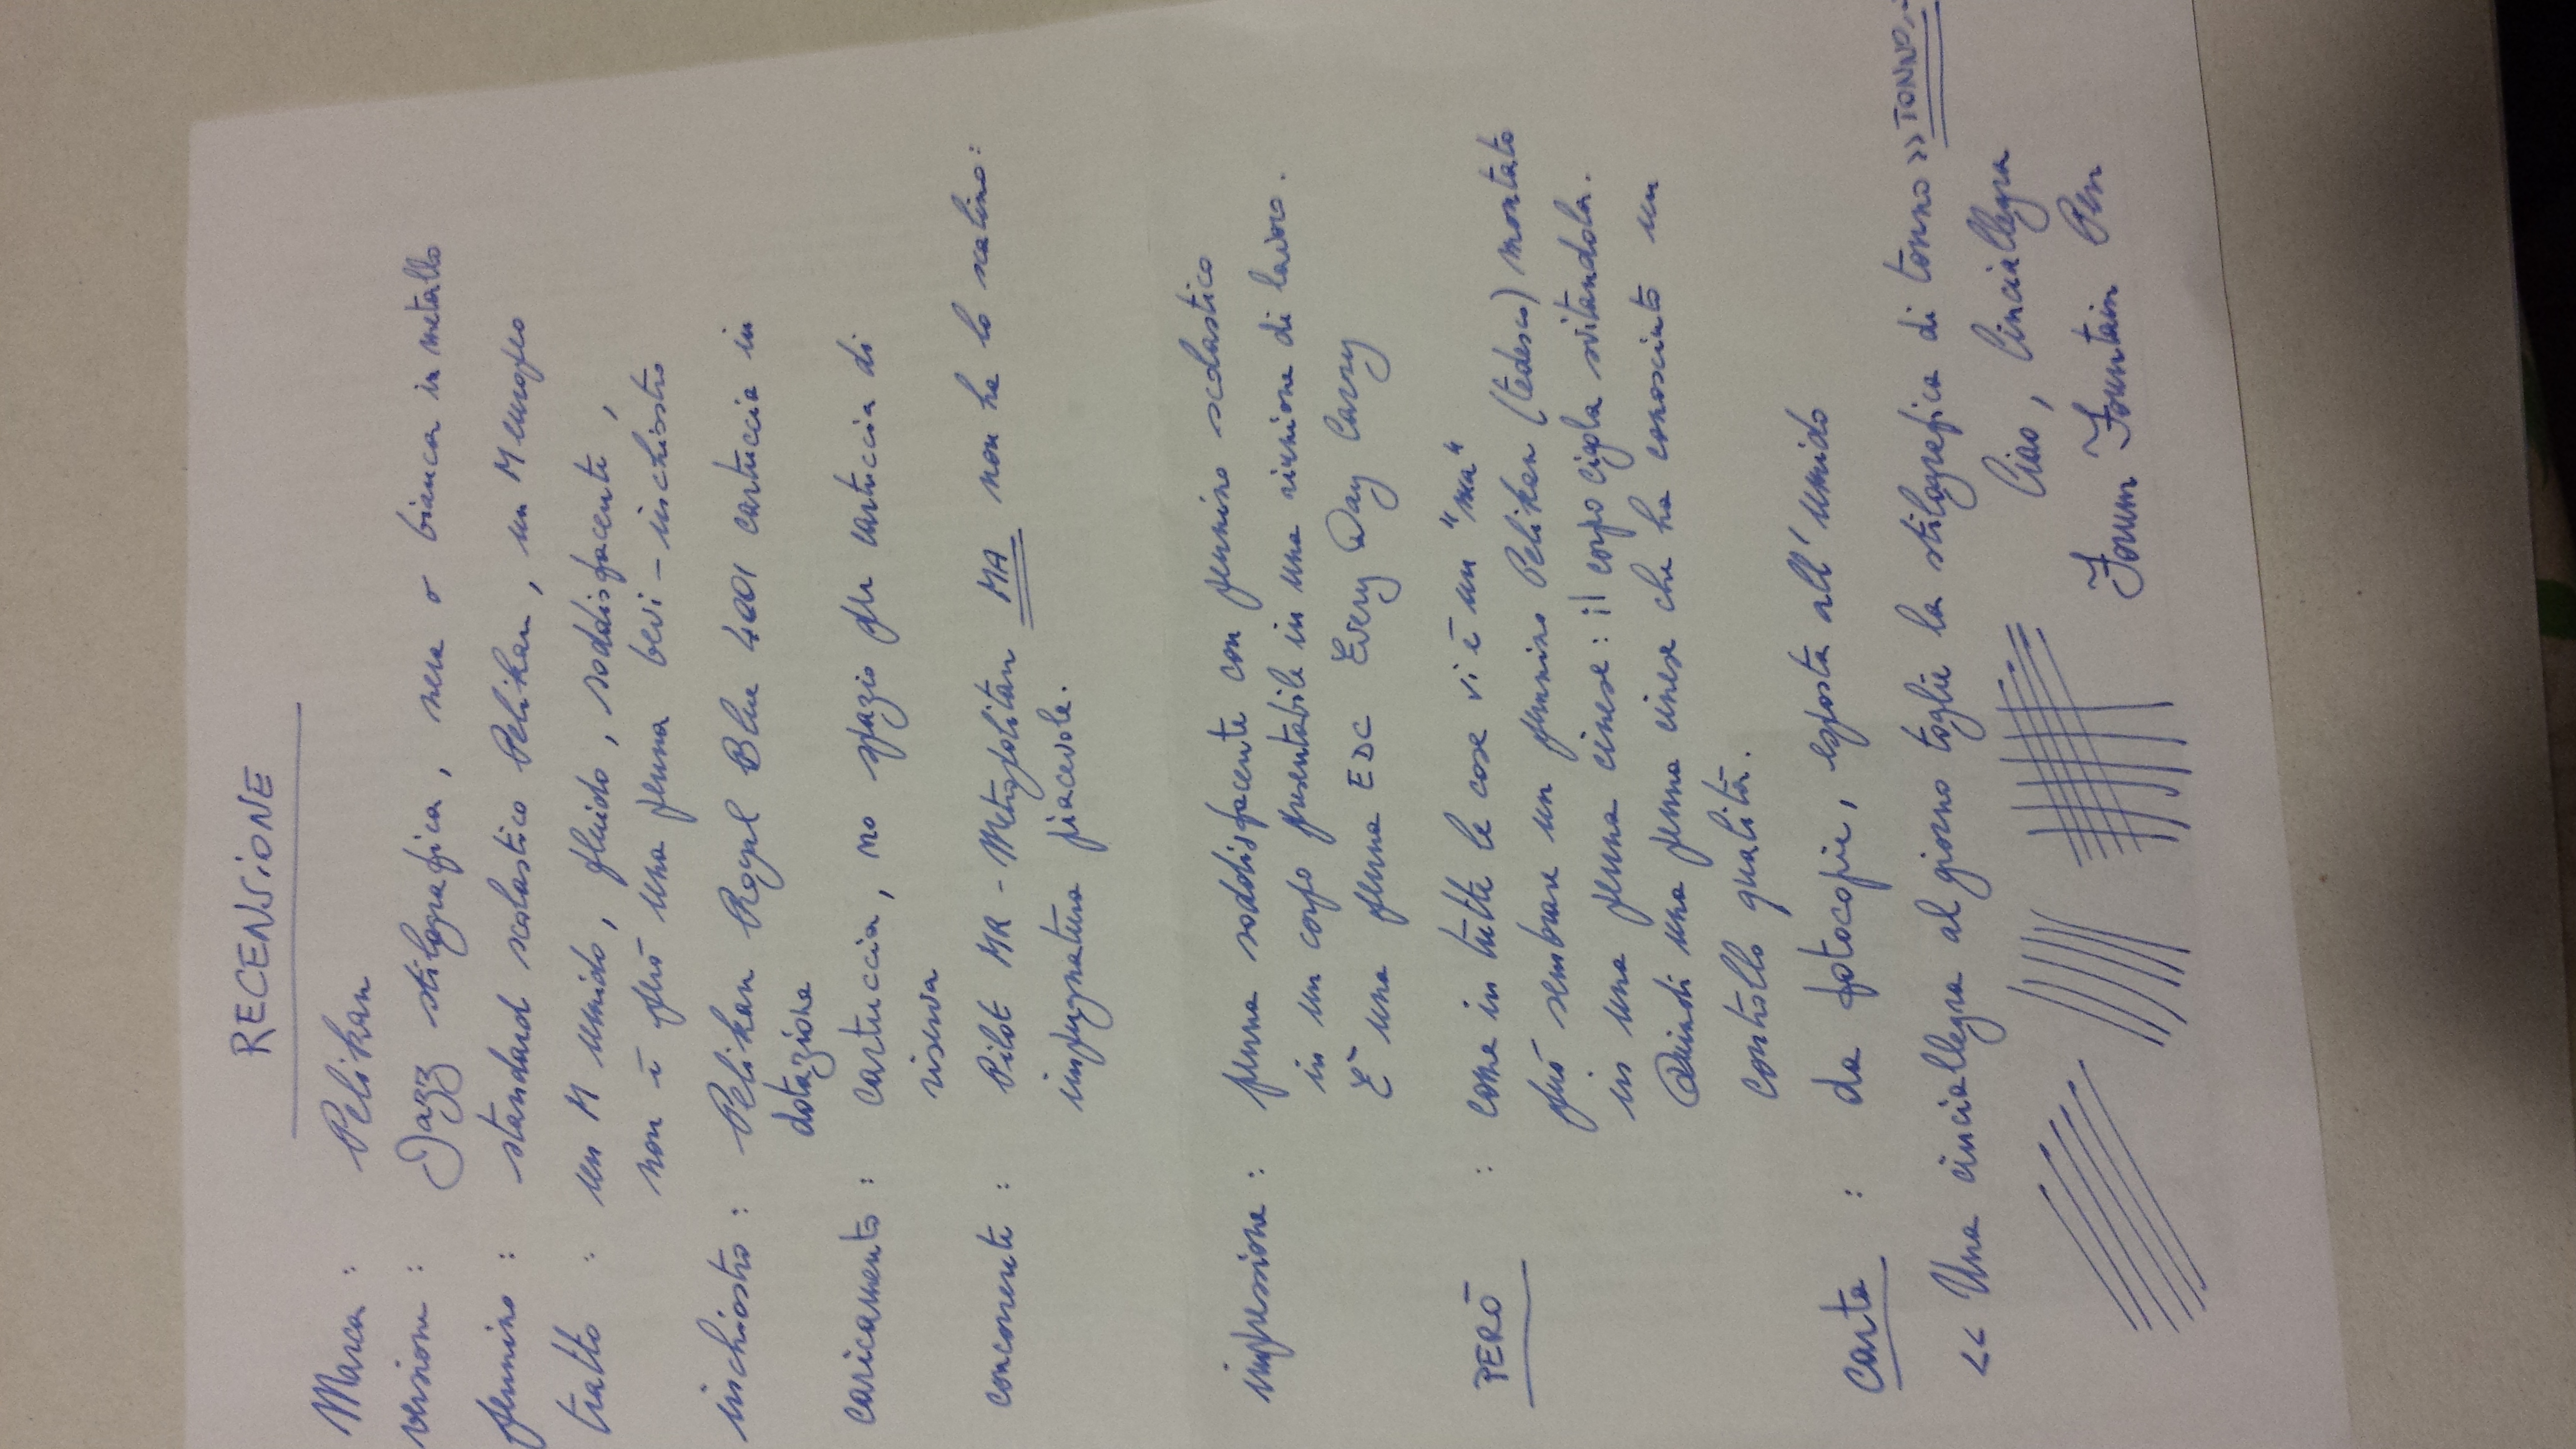 RECENSIONE
Marca : Pelikan
versione : Jazz stilografica, nera o bianca in metallo
pennino : standard scolastico Pelikan, un M europeo
tratto : un M umido, fluido, soddisfacente,
non è però una penna bevi-inchiostro
inchiostro : Pelikan Royal Blue 4001 cartuccia in
dotazione
caricamento : cartuccia, no spazio per cartuccia di
riserva
concorrente : Pilot MR - Metropolitan MA non ha lo scalino:
impugnatura piacevole.
impressione : penna soddisfacente con pennino scolastico
in un corpo presentabile in una riunione di lavoro.
È una penna EDC Every Day Carry
PERÒ : come in tutte le cose vi è un "ma"
può sembrare un pennino Pelikan (tedesco) montato
in una penna cinese: il corpo cigola svitandola.
Quindi una penna cinese che ha conosciuto un
controllo qualità.
Carta : da fotocopie, esposta all'umido
<< Una cinciallegra al giorno toglie la stilografica di tonno >> TONNO
Ciao, Cinciallegra
Forum Fountain Pen